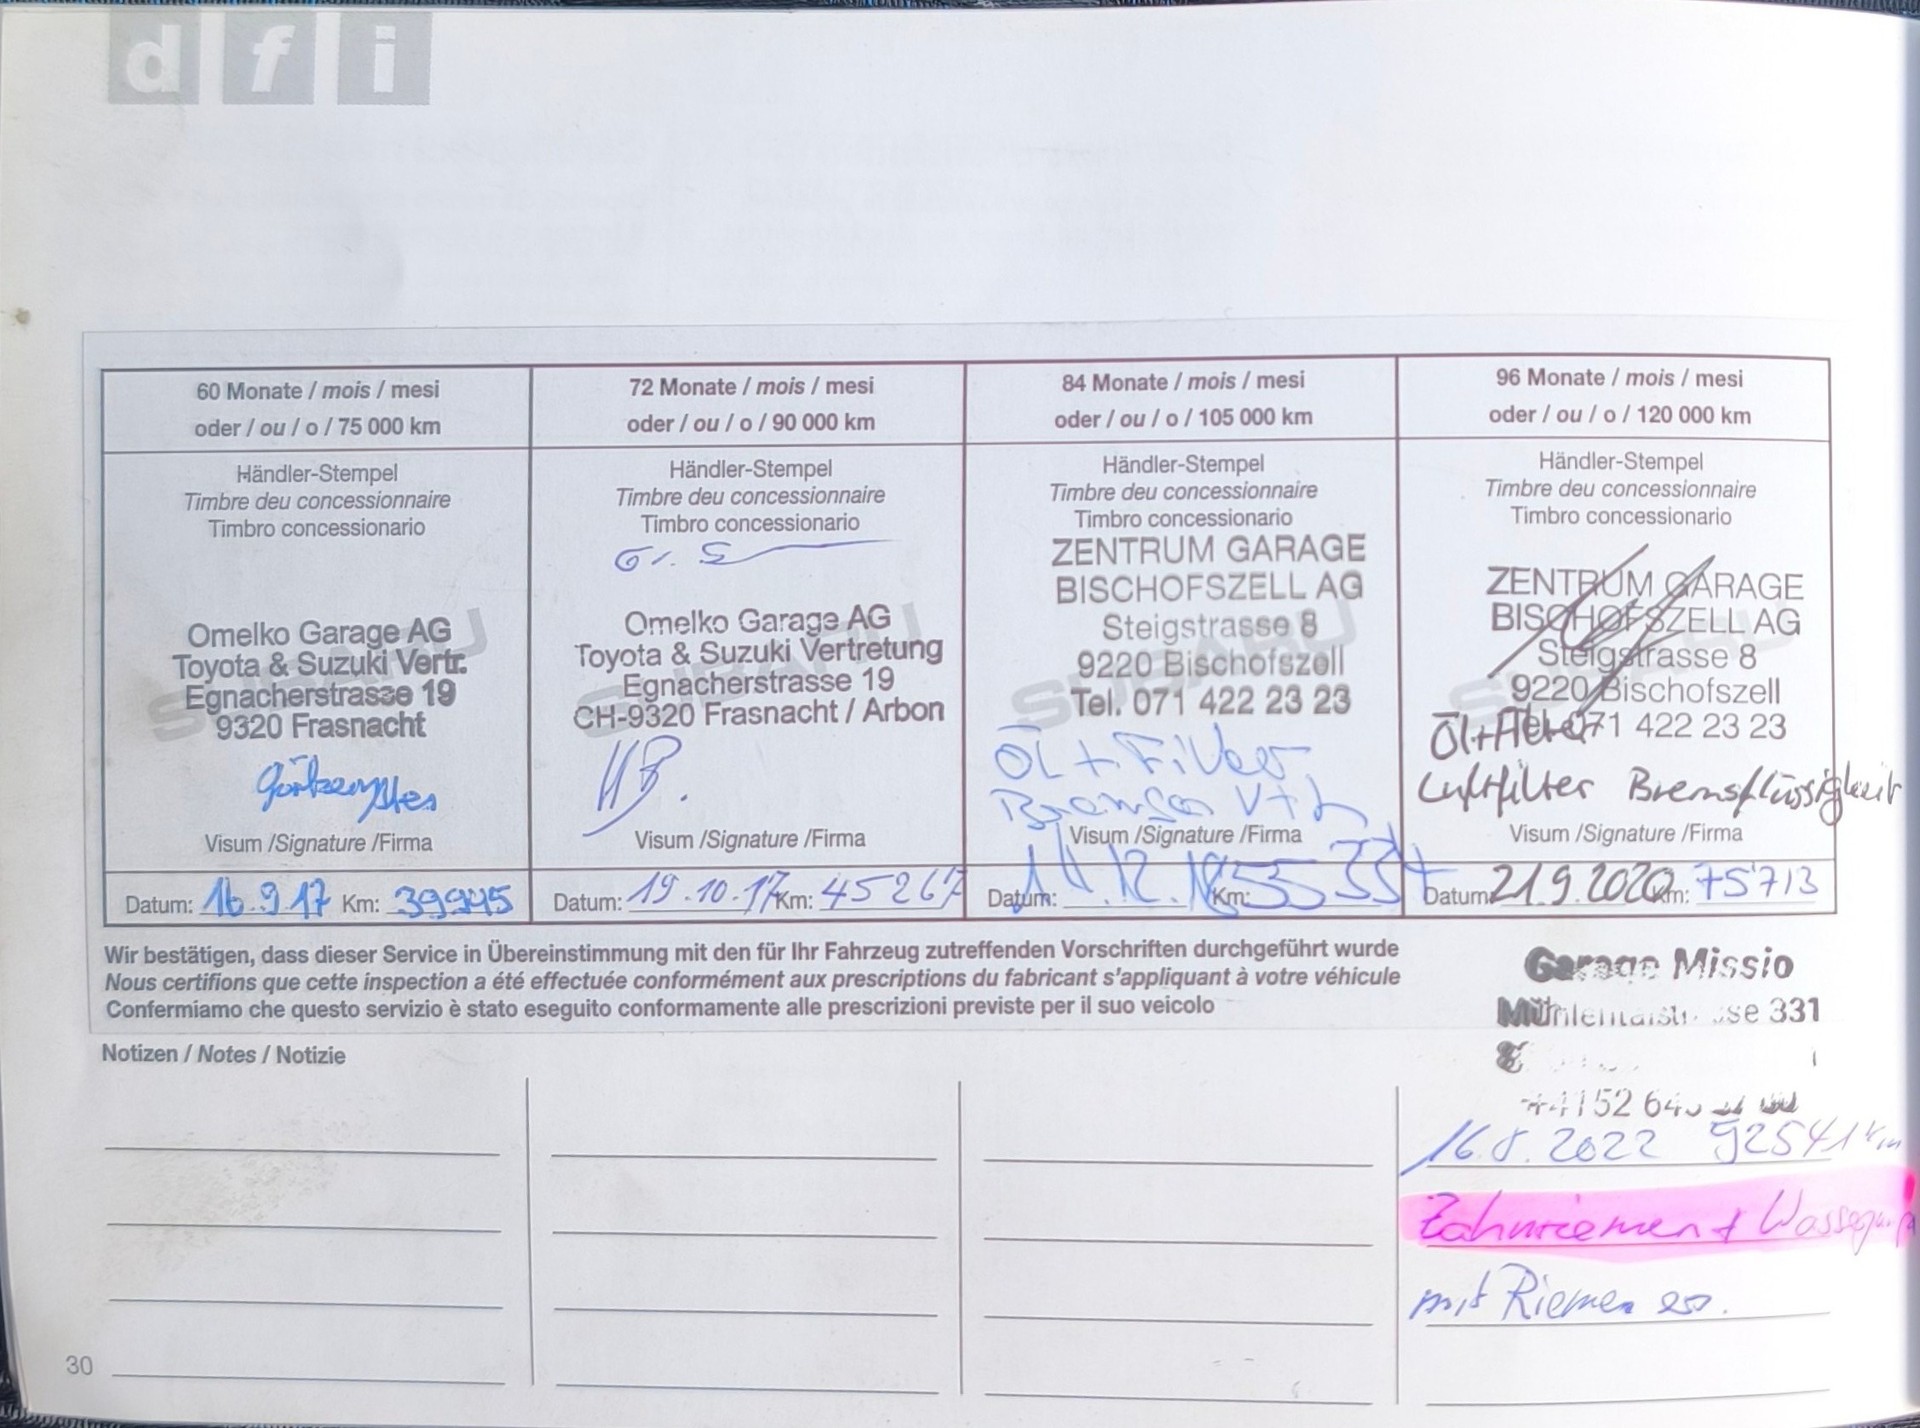 d f i
60 Monate / mois / mesi
oder / ou / o / 75 000 km
Händler-Stempel
Timbre deu concessionnaire
Timbro concessionario
SUBARU
Omelko Garage AG
Toyota & Suzuki Vertr.
Egnacherstrasse 19
9320 Frasnacht
Visum /Signature /Firma
Datum: 16.9.17 Km: 39945
72 Monate / mois / mesi
oder / ou / o / 90 000 km
Händler-Stempel
Timbre deu concessionnaire
Timbro concessionario
SUBARU
Omelko Garage AG
Toyota & Suzuki Vertretung
Egnacherstrasse 19
CH-9320 Frasnacht / Arbon
Visum /Signature /Firma
Datum: 19.10.17 Km: 45267
84 Monate / mois / mesi
oder / ou / o / 105 000 km
Händler-Stempel
Timbre deu concessionnaire
Timbro concessionario
SUBARU
ZENTRUM GARAGE
BISCHOFSZELL AG
Steigstrasse 8
9220 Bischofszell
Tel. 071 422 23 23
Öl + Filter
Bremsen V+h
Visum /Signature /Firma
Datum: 11.12.18 Km:
96 Monate / mois / mesi
oder / ou / o / 120 000 km
Händler-Stempel
Timbre deu concessionnaire
Timbro concessionario
SUBARU
ZENTRUM GARAGE
BISCHOFSZELL AG
Steigstrasse 8
9220 Bischofszell
Tel. 071 422 23 23
Öl+Filter
Luftfilter Bremsflüssigkeit
Visum /Signature /Firma
Datum: 21.9.2020 Km: 75'713
Wir bestätigen, dass dieser Service in Übereinstimmung mit den für Ihr Fahrzeug zutreffenden Vorschriften durchgeführt wurde
Nous certifions que cette inspection a été effectuée conformément aux prescriptions du fabricant s'appliquant à votre véhicule
Confermiamo che questo servizio è stato eseguito conformamente alle prescrizioni previste per il suo veicolo
Garage Missio
331
+41 52
Notizen / Notes / Notizie
16.8.2022 92541 km
Zahnriemen + Wasserpumpe
mit Riemen
30